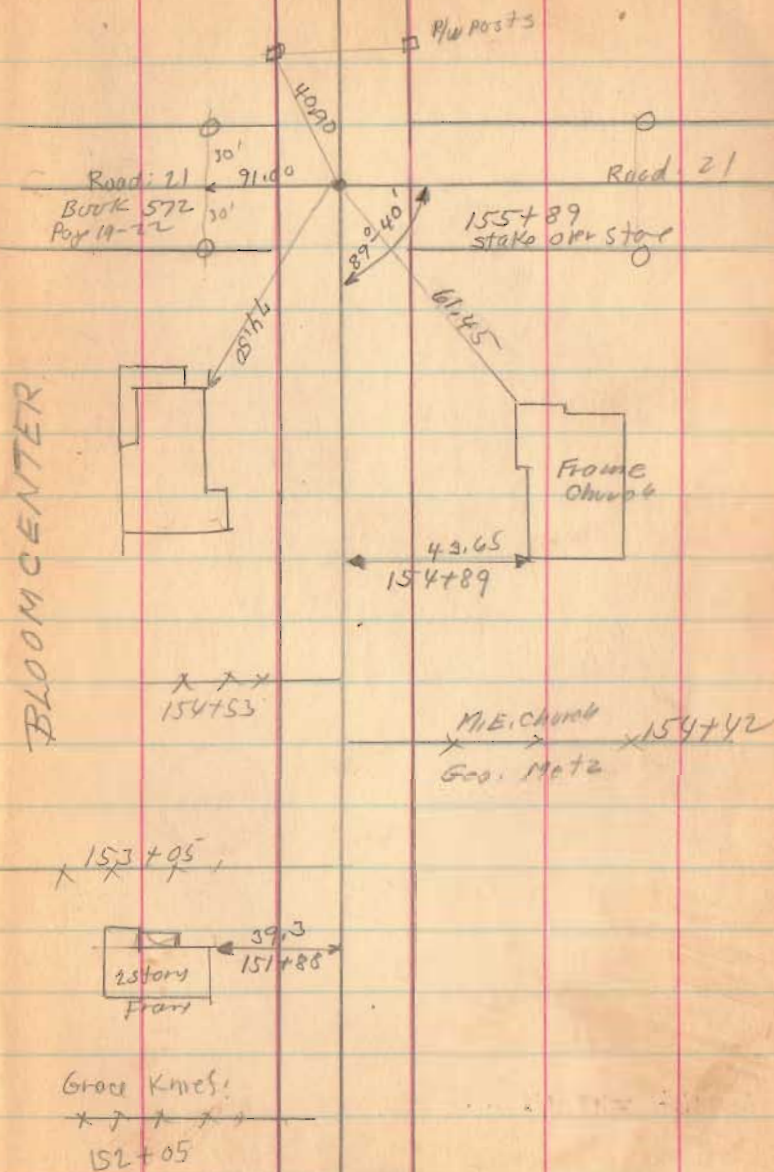 P/w Posts
40.90
30'
Road: 21
91.00
Road: 21
Book 572
30'
Page 19-22
89°-40'
155+89
stake over Stone
74.50
61.45
BLOOMCENTER
Frame
Church
43.65
154+89
154+53
M.E. Church
154+42
Geo. Metz
153+05
39.3
151+88
2story
Fram
Grace
152+05